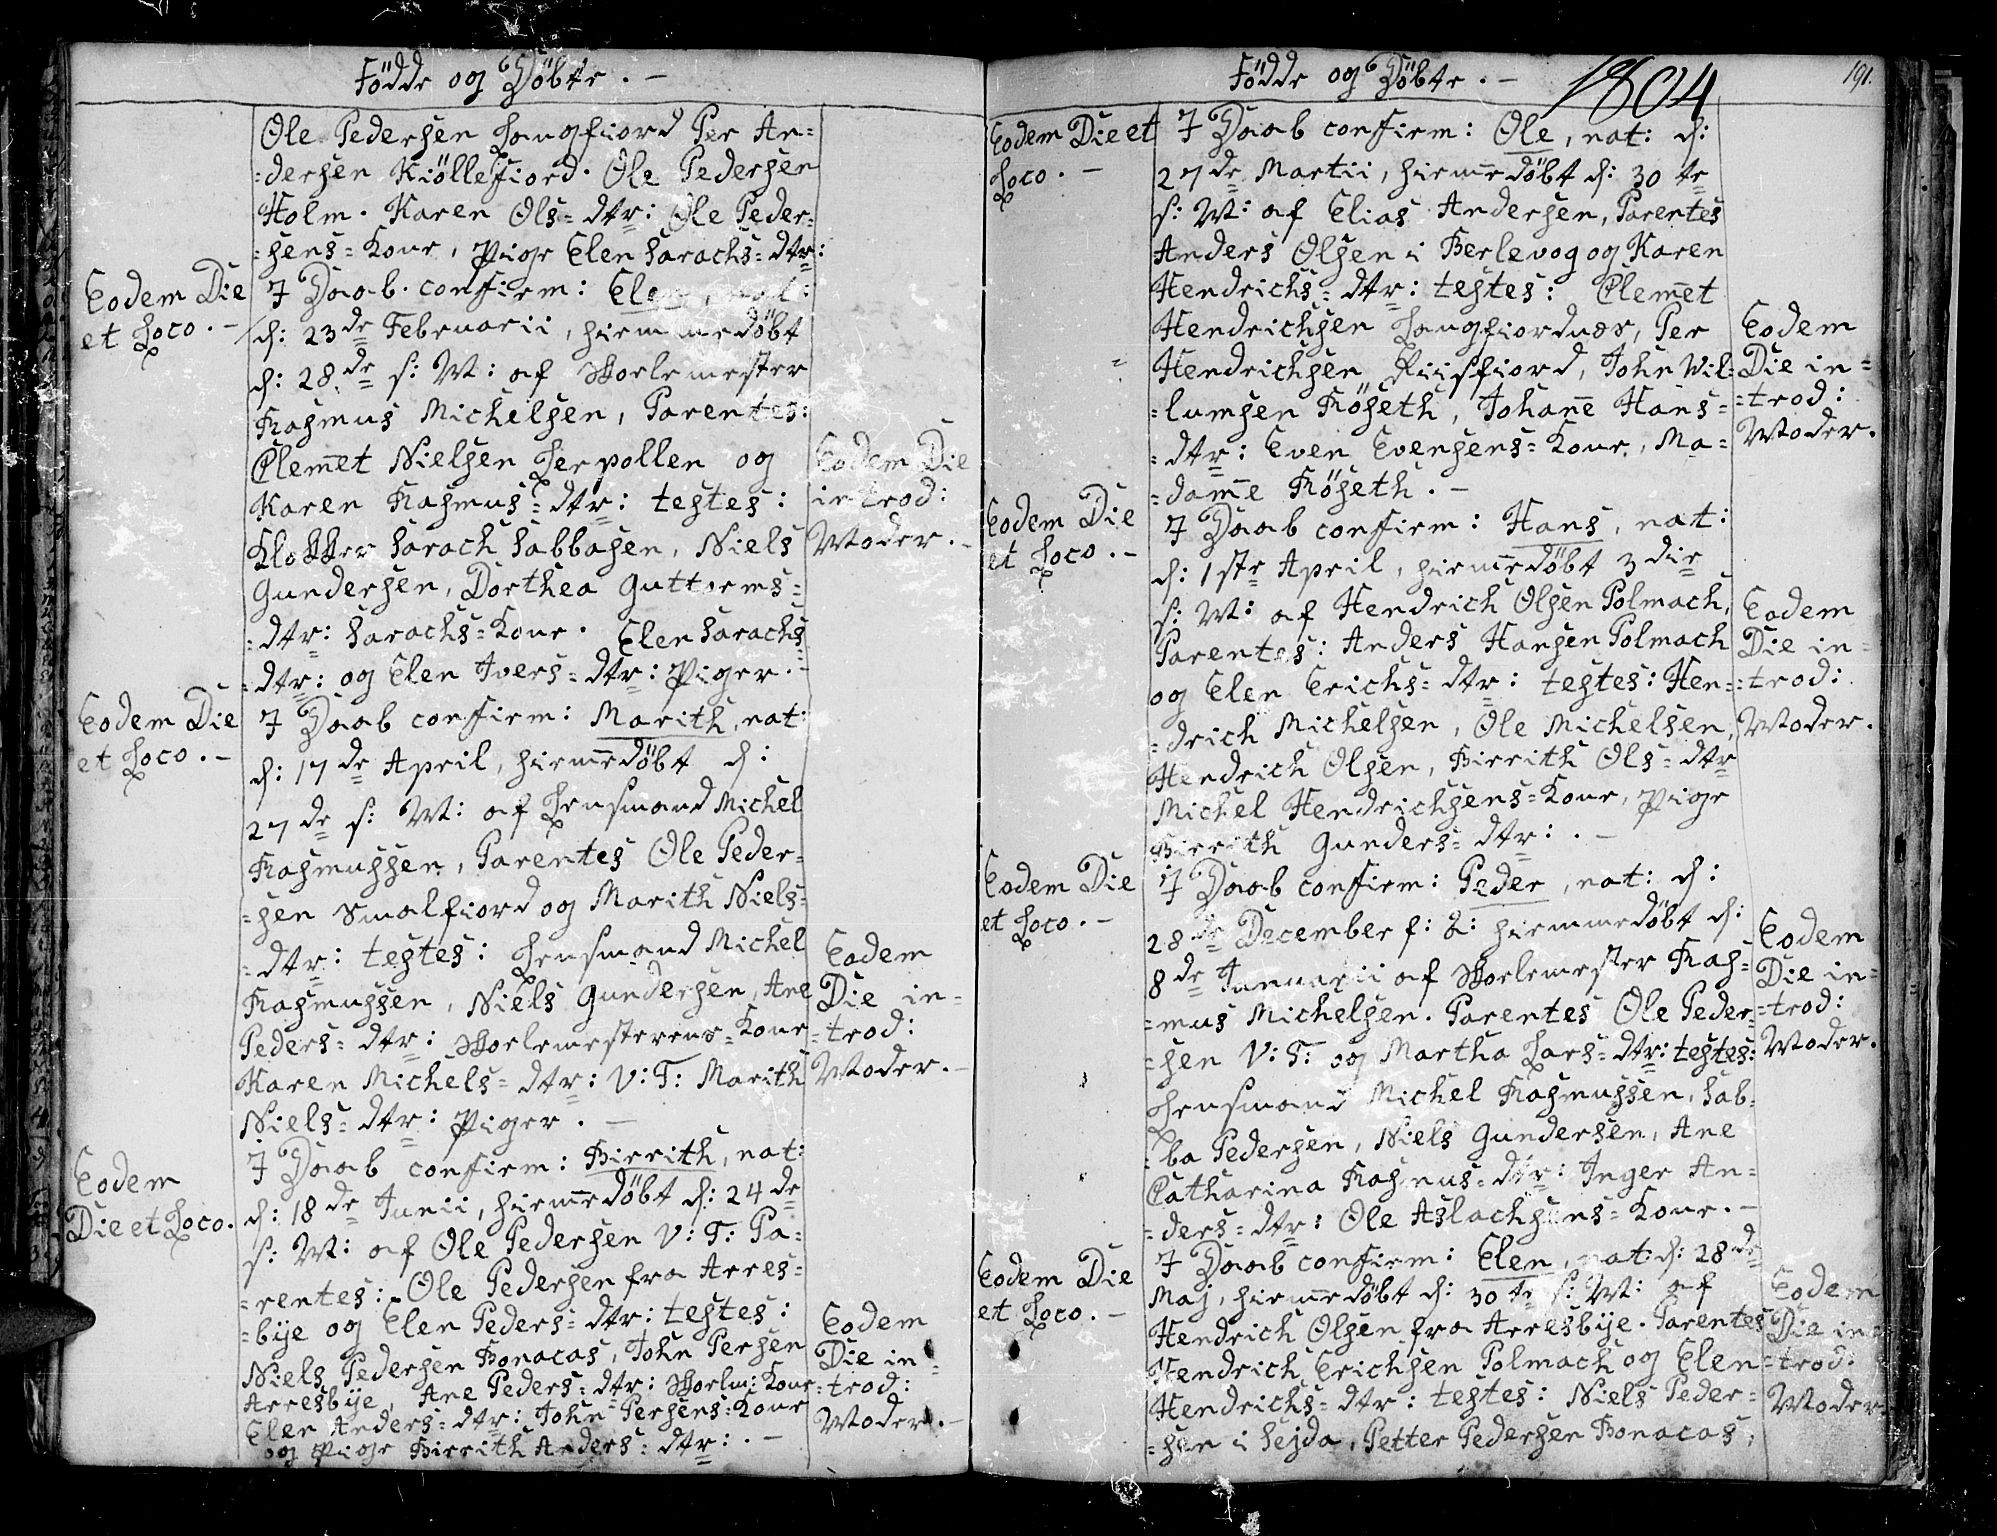 Födde og Döbte. —
Ole Pedersen Langfiord Per An=
=dersen Kiöllefiord. Ole Pedersen
Holm. Karen Ols=dtr: Ole Peder=
=sens=Kone, Pige Elen Sarachs=dtr:
Eodem Die
et Loco. —
I Daab confirm: Elen, nat:
d: 23de Februarii, hiemmedöbt
d: 28de s: M: af Skolemester
Rasmus Michelsen, Parentes:
Clem̄et Nielsen Lerpollen og
Karen Rasmus=dtr: testes:
Klokker Sarach Sabbasen, Niels
Gundersen, Dorthea Guttorms=
=dtr: Sarachs=Kone. Elen Sarachs
=dtr: og Elen Ivers=dtr: Piger. —
Eodem Die
introd:
Moder. —
Eodem Die
et Loco. —
I Daab confirm: Marith, nat:
d: 17de April, hiem̄edöbt d:
27de s: M: af Lensmand Michel
Rasmussen, Parentes Ole Peder=
=sen Smalfiord og Marith Niels=
=dtr: testes: Lensmand Michel
Rasmussen, Niels Gundersen, Ane
Peders=dtr: Skolemesterens=Kone
Karen Michels=dtr: V: T: Marith
Niels=dtr: Piger. —
Eodem
Die in=
=trod:
Moder. —
Eodem
Die et Loco.
I Daab confirm: Birrith, nat:
d: 18de Junii, hiem̄edöbt d: 24de
s: M: af Ole Pedersen V: T: Pa=
=rentes: Ole Pedersen fra Arres=
=bÿe og Elen Peders=dtr: testes:
Niels Pedersen Bonacas, John Persen
Arresbÿe, Ane Peders=dtr: Skolm: Kone
Elen Anders=dtr: John Persens=Kone
og Pige Birrith Anders=dtr: . —
Eodem
Die in=
=trod:
Moder. —
Födde og Döbte. —
1804
191.
Eodem Die et
Loco. —
I Daab confirm: Ole, nat: d:
27de Martii, hiem̄edöbt d: 30te
s: M: af Elias Andersen, Parentes
Anders Olsen i Berlevog og Karen
Hendrichs=dtr: testes: Clem̄et
Hendrichsen Langfiordnæs, Per
Hendrichsen Riisfiord, John Wil=
=lumsen Röseth, Johan̄e Hans=
=dtr: Even Evensens=Kone, Ma=
=dam̄e Röseth. —
Eodem
Die in=
=trod:
Moder.
Eodem Die
et Loco. —
I Daab confirm: Hans, nat:
d: 1ste April, hiem̄edöbt 3die
s: M: af Hendrich Olsen Polmach,
Parentes: Anders Hansen Polmach
og Elen Erichs=dtr: testes: Hen=
=drich Michelsen, Ole Michelsen,
Hendrich Olsen, Birrith Ols=dtr
Michel Hendrichsens=Kone, Pige
Birrith Gunders=dtr: . —
Eodem
Die in=
=trod:
Moder.
Eodem Die
et Loco. —
I Daab confirm: Peder, nat: d:
28de December f: A: hiemmedöbt d:
8de Januarii af Skolemester Ras=
=mus Michelsen. Parentes Ole Peder=
=sen V: T: og Martha Lars=dtr: testes:
Lensmand Michel Rasmussen, Sab=
=ba Pedersen, Niels Gundersen, Ane
Catharina Rasmus=dtr: Inger An=
=ders=dtr: Ole Aslachsens=Kone. —
Eodem
Die in=
=trod:
Moder.
Eodem Die
et Loco. —
I Daab confirm: Elen, nat: d: 28de
Maj, hiem̄edöbt d: 30te s: M: af
Hendrich Olsen fra Arresbÿe. Parentes
Hendrich Erichsen Polmach og Elen
Hendrichs=dtr: testes: Niels Peder=
=sen i Sejda, Petter Pedersen Bonacas,
Eodem
Die in=
=trod:
Moder